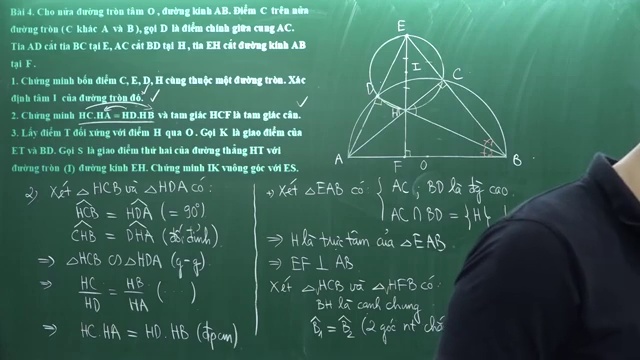 Bài 4. Cho nửa đường tròn tâm O, đường kính AB. Điểm C trên nửa
đường tròn ( C khác A và B ), gọi D là điểm chính giữa cung AC.
Tia AD cắt tia BC tại E, AC cắt BD tại H, tia EH cắt đường kính AB
tại F.
1. Chứng minh bốn điểm C, E, D, H cùng thuộc một đường tròn. Xác
định tâm I của đường tròn đó.
2. Chứng minh HC.HA = HD.HB và tam giác HCF là tam giác cân.
3. Lấy điểm T đối xứng với điểm H qua O. Gọi K là giao điểm của
ET và BD. Gọi S là giao điểm thứ hai của đường thẳng HT với
đường tròn (I) đường kính EH. Chứng minh IK vuông góc với ES.
E
I
D
C
H
A
F
O
B
2) Xét △HCB và △HDA có:
HCB = HDA (= 90°)
CHB = DHA (đối đỉnh)
⇒ △HCB ∽ △HDA (g-g)
⇒ HC/HD = HB/HA (...)
⇒ HC.HA = HD.HB (đpcm)
+, Xét △EAB có: { AC, BD là đg cao
AC ∩ BD = {H}
⇒ H là trực tâm của △EAB
⇒ EF ⊥ AB
Xét △HCB và △HFB có:
BH là cạnh chung
B1 = B2 (2 góc nt chắ